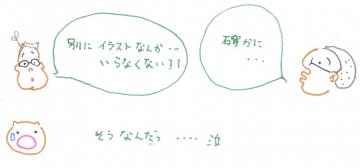 別に イラストなんか・・
いらなくない??
確かに
・・・
そうなんだっ ・・・・ 泣